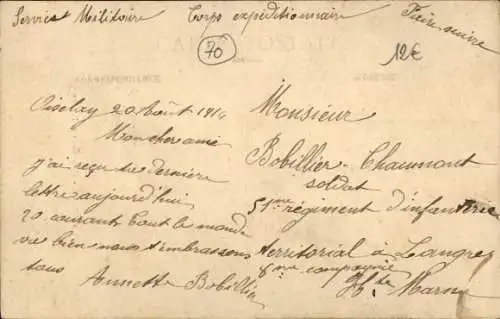 Service Militaire Corps expéditionnaire Faire suivre
70
12€
CARTE POSTALE
CORRESPONDANCE
Oiselay 20 Août 1914
Mon cher ami
j'ai reçu ta dernière
lettre aujourd'hui
20 courant tout le monde
va bien nous t'embrassons
tous Annette Bobillier
Monsieur
Bobillier Chaumont
soldat
51me régiment d'infanterie
territorial à Langres
8me compagnie
Hte Marne